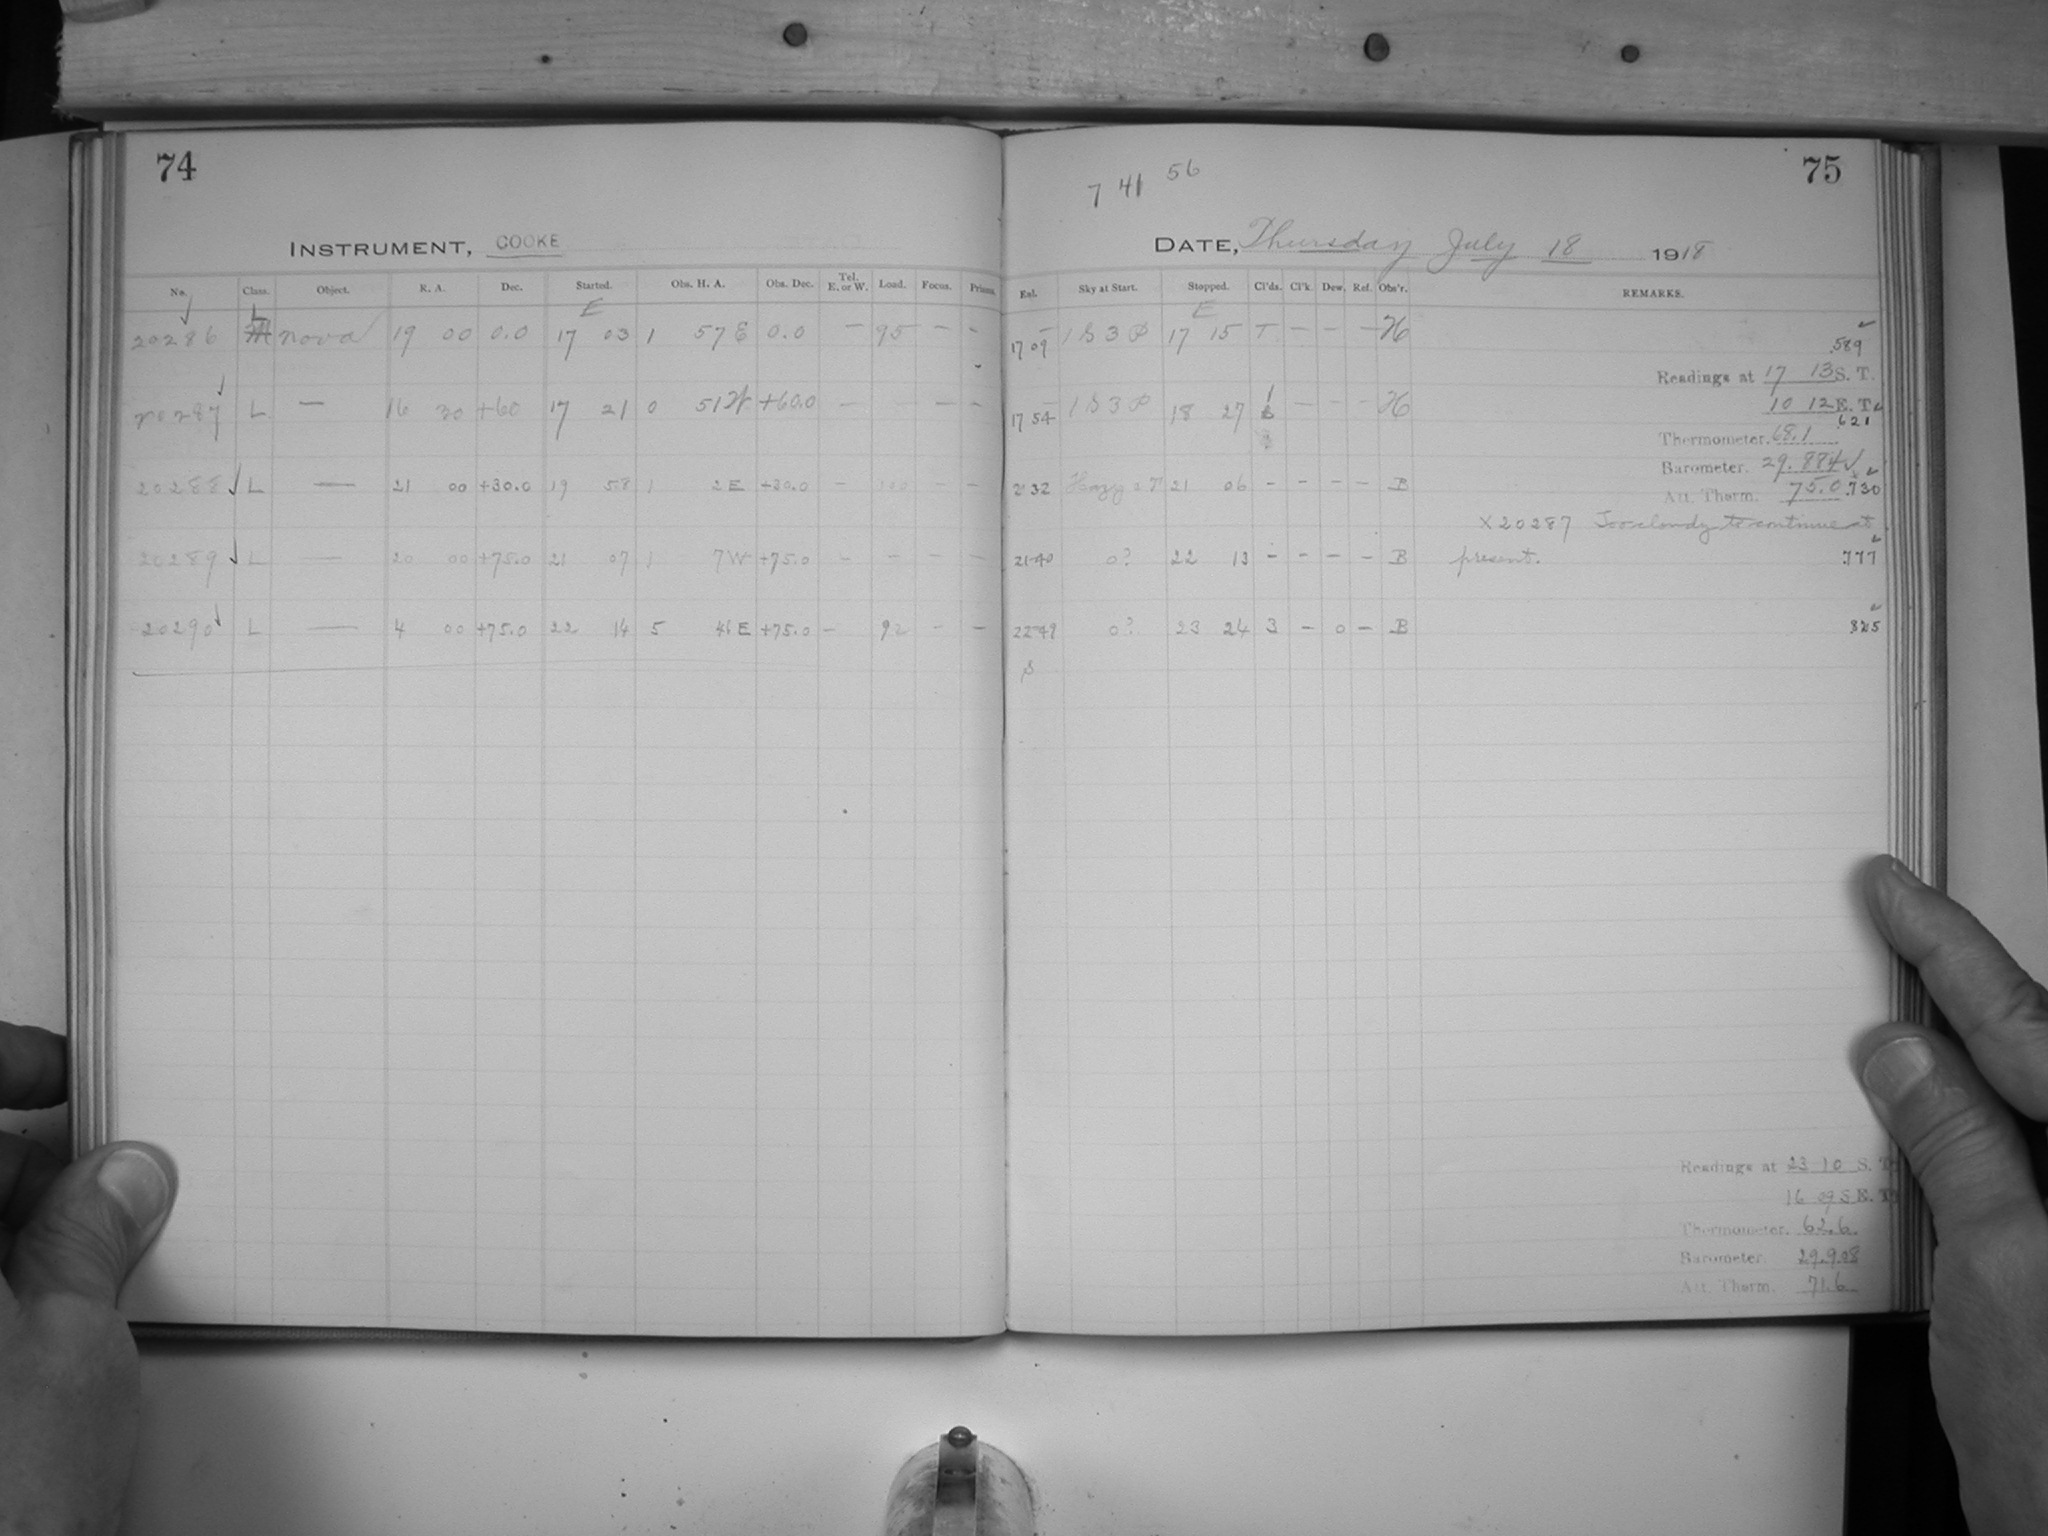 74
INSTRUMENT, COOKE
No. Class. Object. R. A. Dec. Started. Obs. H. A. Obs. Dec. Tel. E. or W. Load. Focus. Prisms.
E
L
20286 Nova 19 00 0.0 17 03 1 57 E 0.0 — 95 — —
20287 L — 16 30 +60 17 21 0 51 W +60.0 — — — —
20288 L — 21 00 +30.0 19 58 1 2 E +30.0 — 100 — —
20289 L — 20 00 +75.0 21 07 1 7 W +75.0 — — — —
20290 L — 4 00 +75.0 22 14 5 46 E +75.0 — 92 — —
7 41 56
75
DATE, Thursday July 18 1918
Eql. Sky at Start. Stopped. Cl'ds. Cl'k. Dew. Ref. Obs'r. REMARKS.
E
17 09 1 S 3 P 17 15 T — — — H .589
Readings at 17 13 S. T.
17 54 1 S 3 P 18 27 1 — — — H 10 12 E. T.
.621
Thermometer. 68.1
Barometer. 29.884
Hazy 21 06 — — — — B Att. Therm. 75.0 .730
X 20287 Too cloudy to continue at
21 40 0? 22 13 — — — — B present. .777
22 49 0? 23 24 3 — 0 — B .825
S
Readings at 23 10 S. T.
16 09 S E. T.
Thermometer. 62.6
Barometer. 29.908
Att. Therm. 71.6